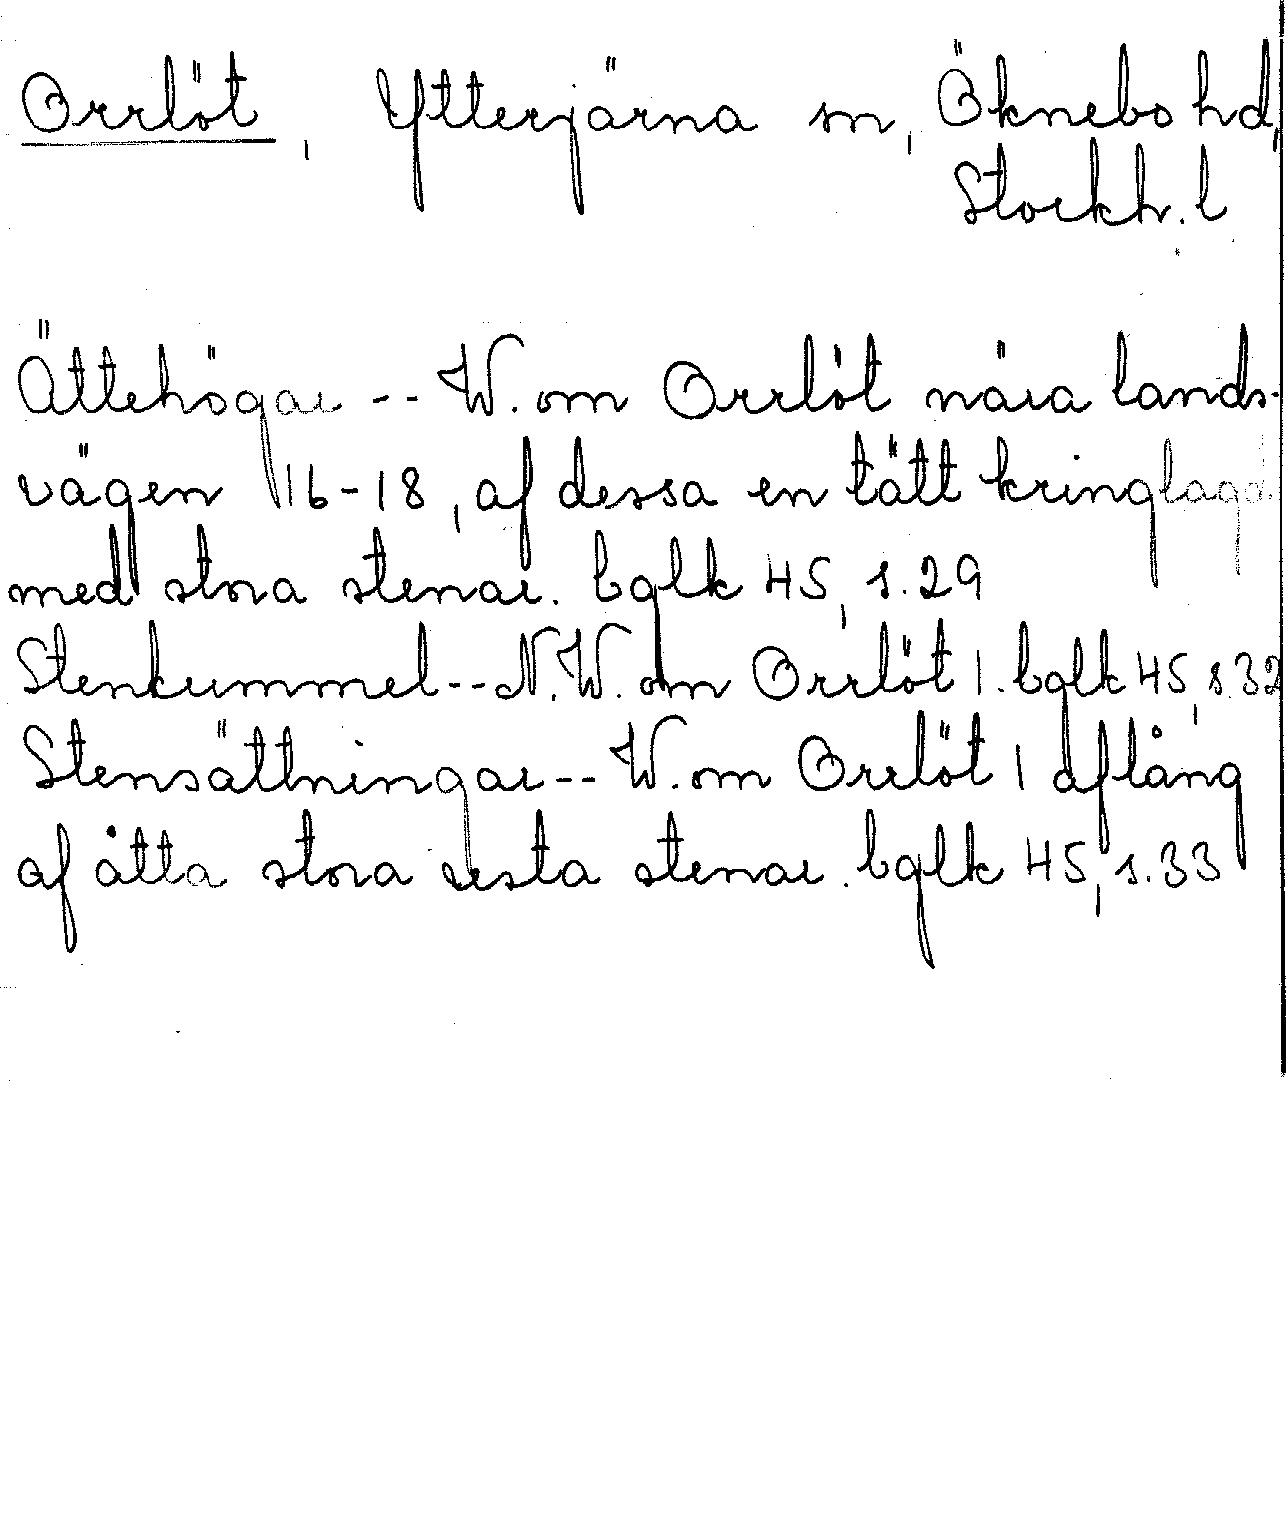 Orrlöt, Ytterjärna sn, Öknebo hd,
Stockh. l
Ättehögar -- W. om Orrlöt nära lands-
vägen 16-18, af dessa en tätt kringlagd
med stora stenar. bglk 45, s. 29
Stenkummel -- N.W. om Orrlöt 1. bglk 45, s. 32
Stensättningar -- W. om Orrlöt 1 aflång
af åtta stora resta stenar. bglk 45, s. 33